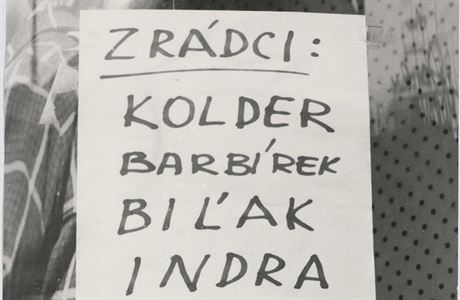 ZRÁDCI:
KOLDER
BARBÍREK
BIĽAK
INDRA